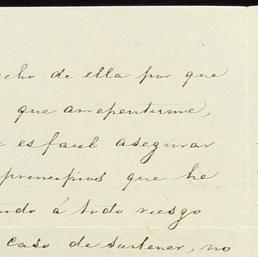 cho de ella por que
que arrepentirme,
es facil asegurar
principios que he
ndo á todo riesgo
caso de sostener, no